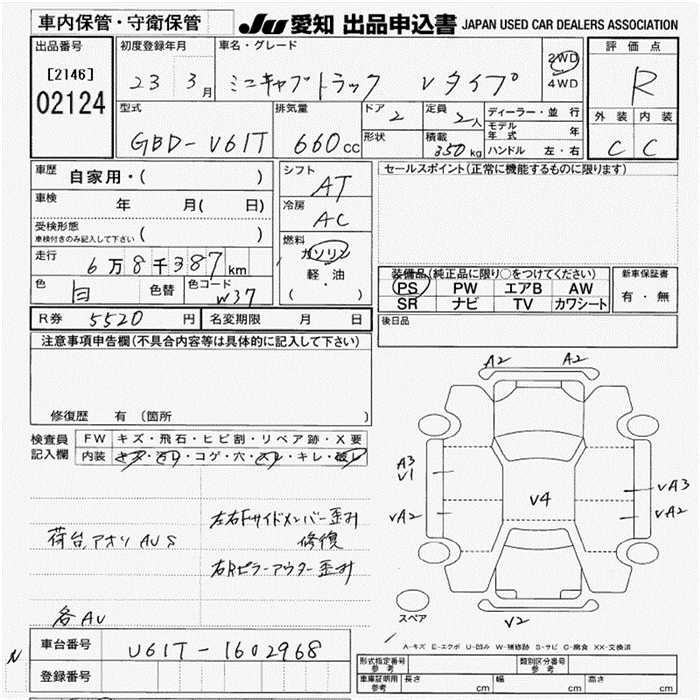 車内保管・守衛保管 JU愛知 出品申込書 JAPAN USED CAR DEALERS ASSOCIATION
出品番号 初度登録年月 車名・グレード 評価点
[2146] 23 3月 ミニキャブトラック Vタイプ 2WD R
02124 4WD
型式 排気量 ドア 2 定員 2人 ディーラー・並行 外装 内装
GBD-V61T 660cc 形状 積載 350kg モデル年式 年 C C
ハンドル 左・右
車歴 自家用・( ) シフト AT セールスポイント(正常に機能するものに限ります)
車検 年 月( 日) 冷房 AC
受検形態
車検付きのみ記入して下さい ( )
燃料 ガソリン
走行 6万8千387km 軽・油
( ・ )
装備品(純正品に限り○をつけてください) 新車保証書
PS PW エアB AW 有・無
SR ナビ TV カワシート
色 白 色替 色コード W37
後日品
R券 5520円 名変期限 月 日
注意事項申告欄(不具合内容等は具体的に記入して下さい)
修復歴 有 (箇所 )
検査員 FW キズ・飛石・ヒビ割・リペア跡・X要
記入欄 内装 キズ・汚レ・コゲ・穴・スレ・キレ・破レ
A2 A2
A3
V1
V4
VA3
VA2 VA2
V2
左右Fサイドメンバー歪み
修復
荷台アオリAUS
右Rピラーアウター歪み
各AU
スペア
A-キズ E-エクボ U-凹み W-補修跡 S-サビ C-腐食 XX-交換済
N 車台番号 U61T-1602968
登録番号
形式指定番号 参考 類別区分番号 参考
車庫証明用 参考 長さ cm 幅 cm 高さ cm